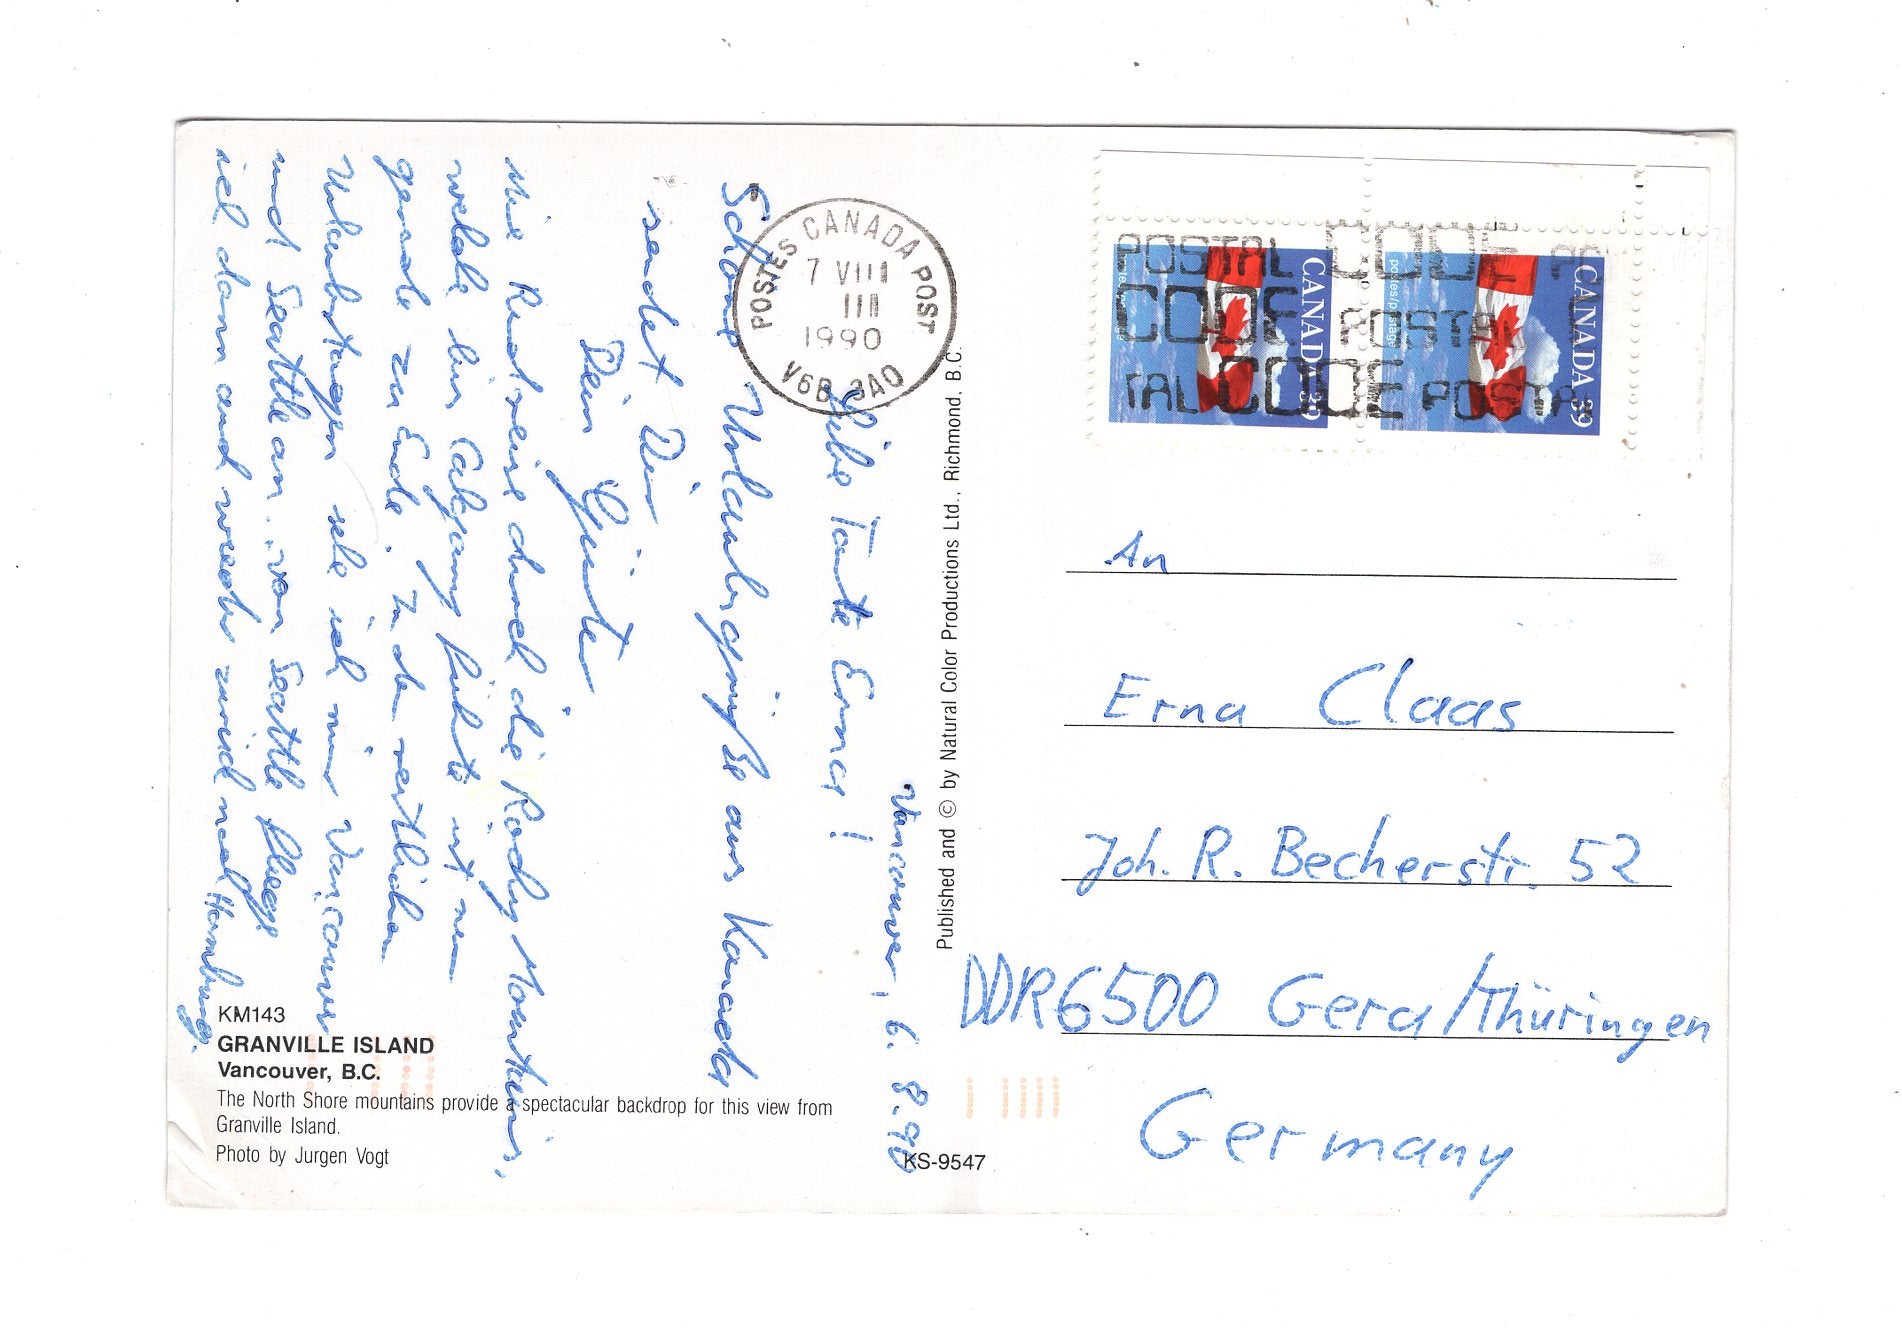 Vancouver, 6.8.90
Liebe Tante Erna!
Schöne Urlaubsgrüße aus Kanada
sendet Dir
Dein Günter
Die Rundreise durch die Rocky Mountains,
welche bis Calgary führte ist nun
gerade zu Ende. In den restlichen
Urlaubstagen sehe ich mir Vancouver
und Seattle an. Von Seattle fliege
ich dann auch wieder zurück nach Hamburg.
POSTES CANADA POST
7 VIII
1990
V6B 3A0
Published and © by Natural Color Productions Ltd., Richmond, B.C.
CANADA 39
postes/postage
CANADA 39
postes/postage
POSTAL CODE PO
CODE POSTAL
TAL CODE POSTA
An
Erna Claas
Joh. R. Becherstr. 52
DDR 6500 Gera/Thüringen
Germany
KM143
GRANVILLE ISLAND
Vancouver, B.C.
The North Shore mountains provide a spectacular backdrop for this view from
Granville Island.
Photo by Jurgen Vogt
KS-9547